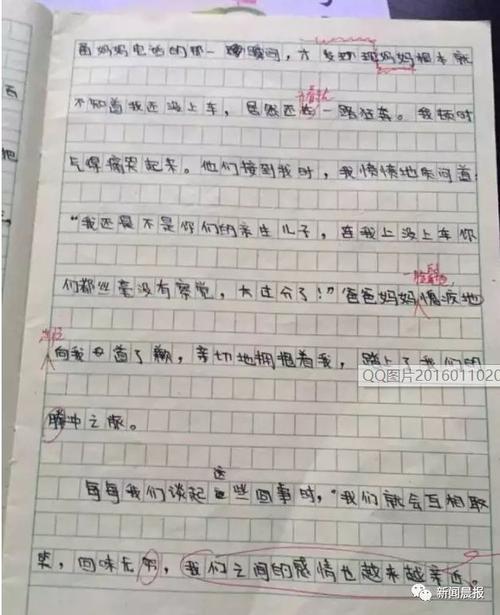 当妈妈电话的那一瞬间，才发现妈妈根本就
不知道我还没上车，居然还在一路狂奔。我顿时
气得痛哭起来。他们接到我时，我愤愤地质问道：
“我还是不是你们的亲生儿子，连我上没上车你
一脸
们都丝毫没有察觉，太过分了！”爸爸妈妈愧疚地
向我道了歉，亲切地拥抱着我，踏上了我们的
QQ图片2016011020
腾冲之旅。
这
每每我们谈起些囧事时，“我们就会互相取
笑，回味无穷，我们之间的感情也越来越亲近。
新闻晨报